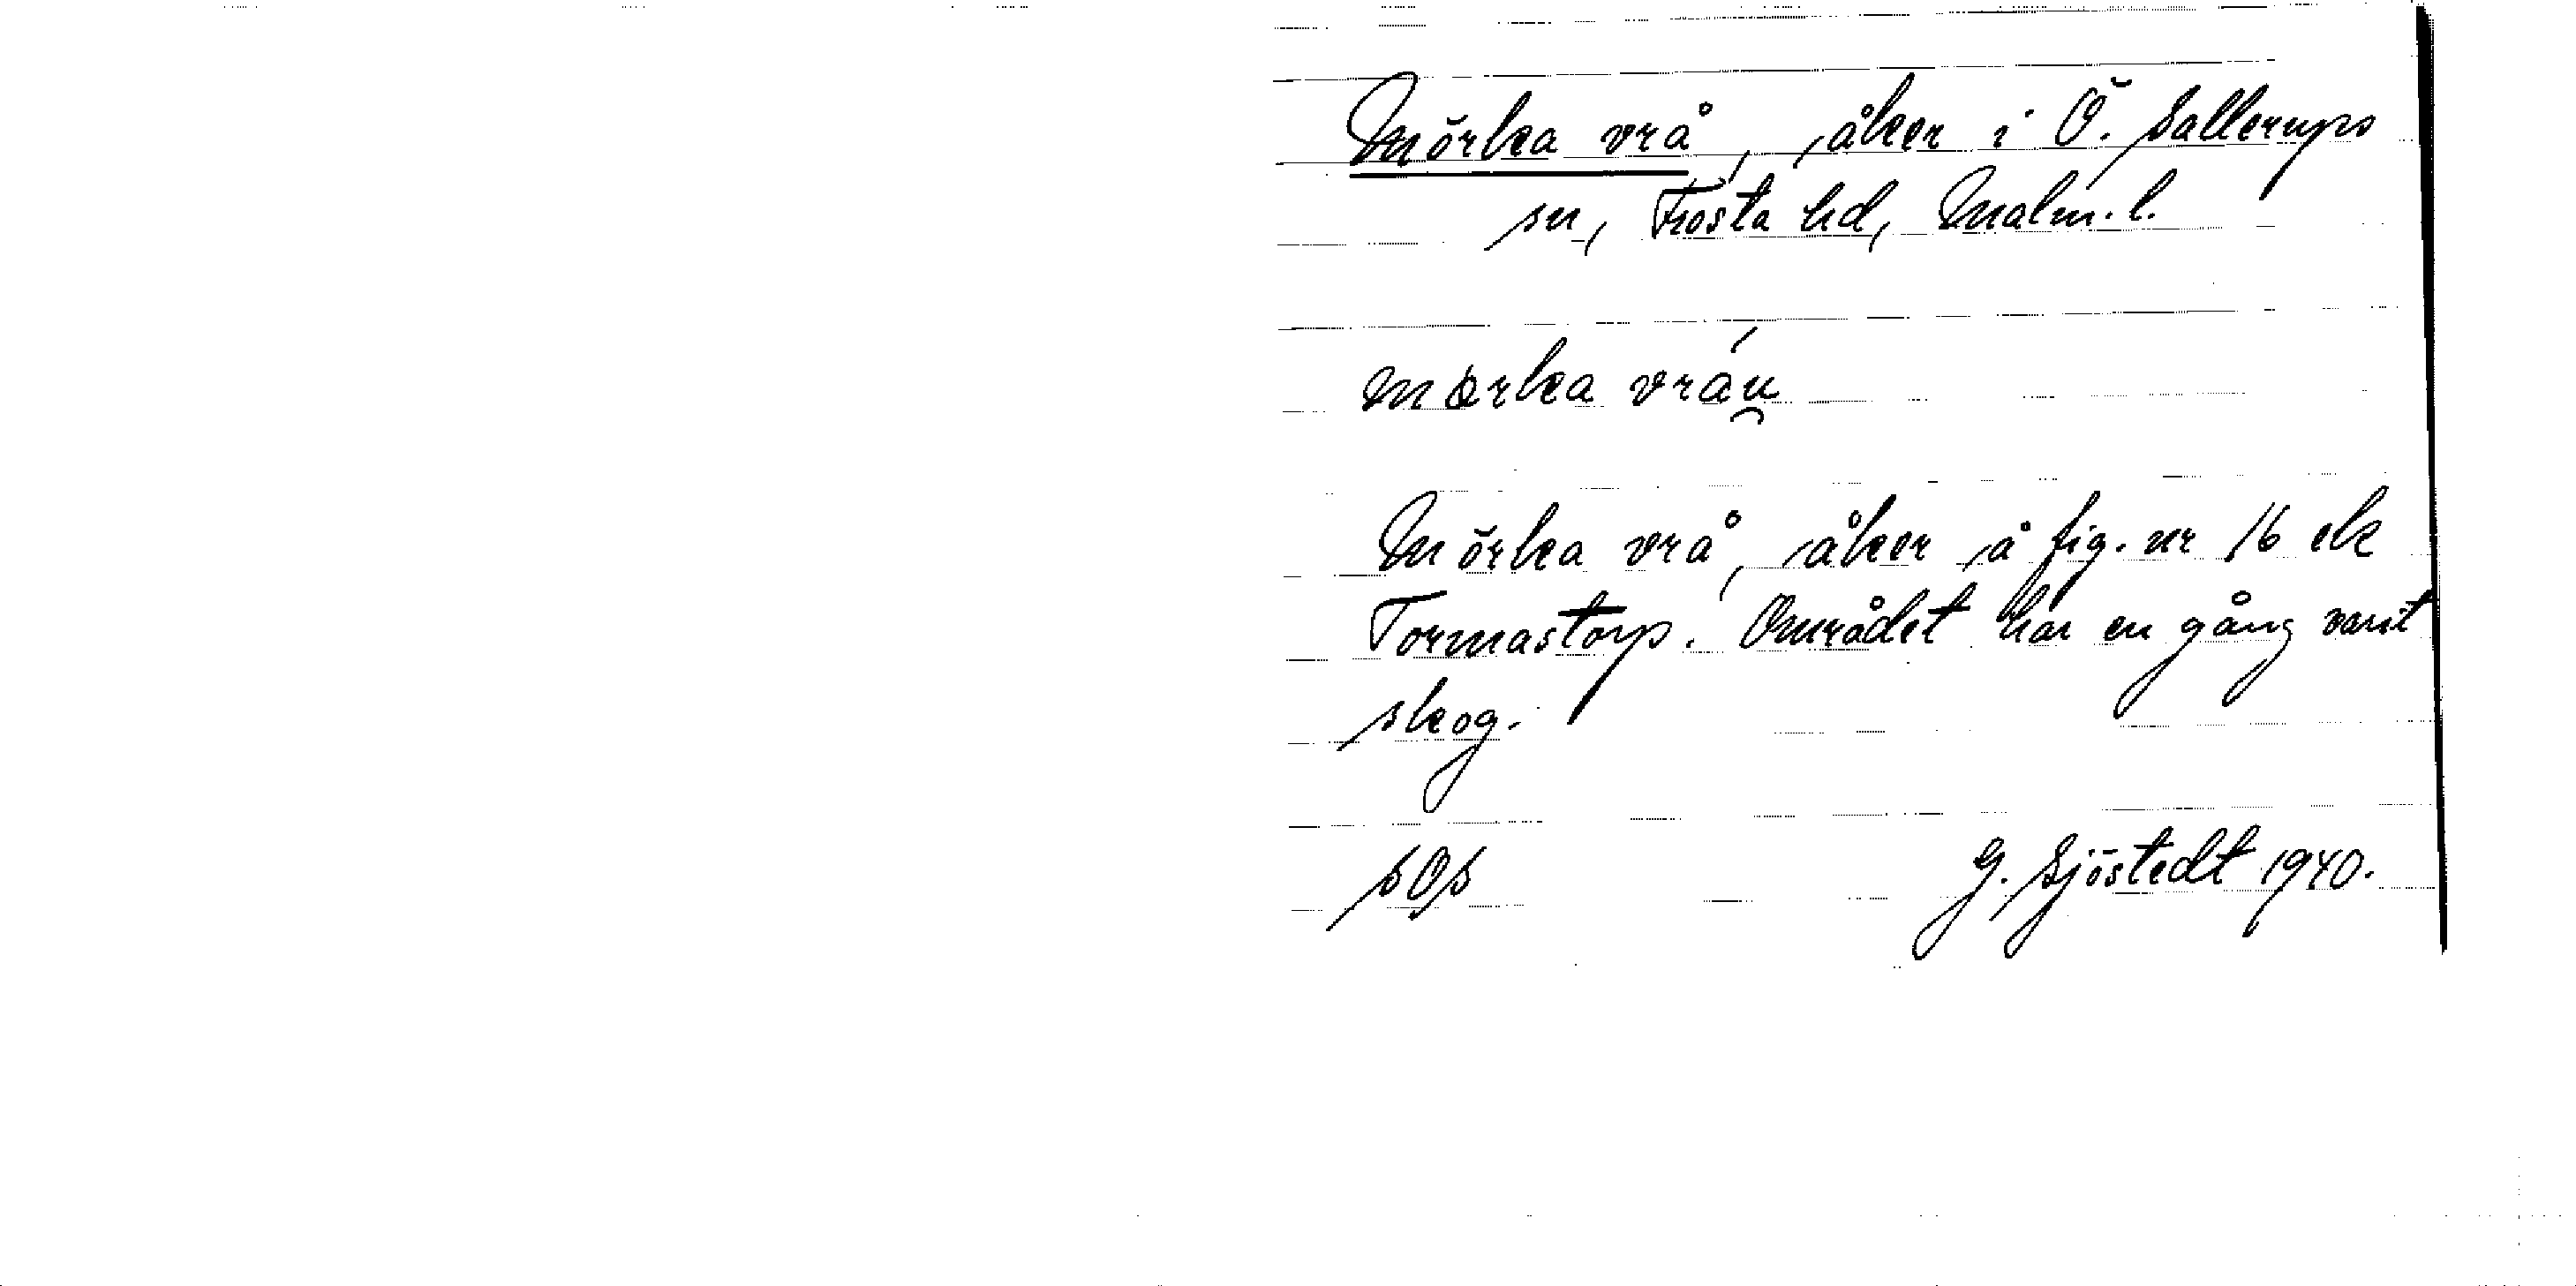 Mörka vrå, åker i Ö. Sallerups
sn, Frosta hd, Malm. l.
mörka vráu̯
Mörka vrå, åker å fig. nr 16 ek
Tormastorp. Området har en gång varit
skog.
SOS G. Sjöstedt 1940.